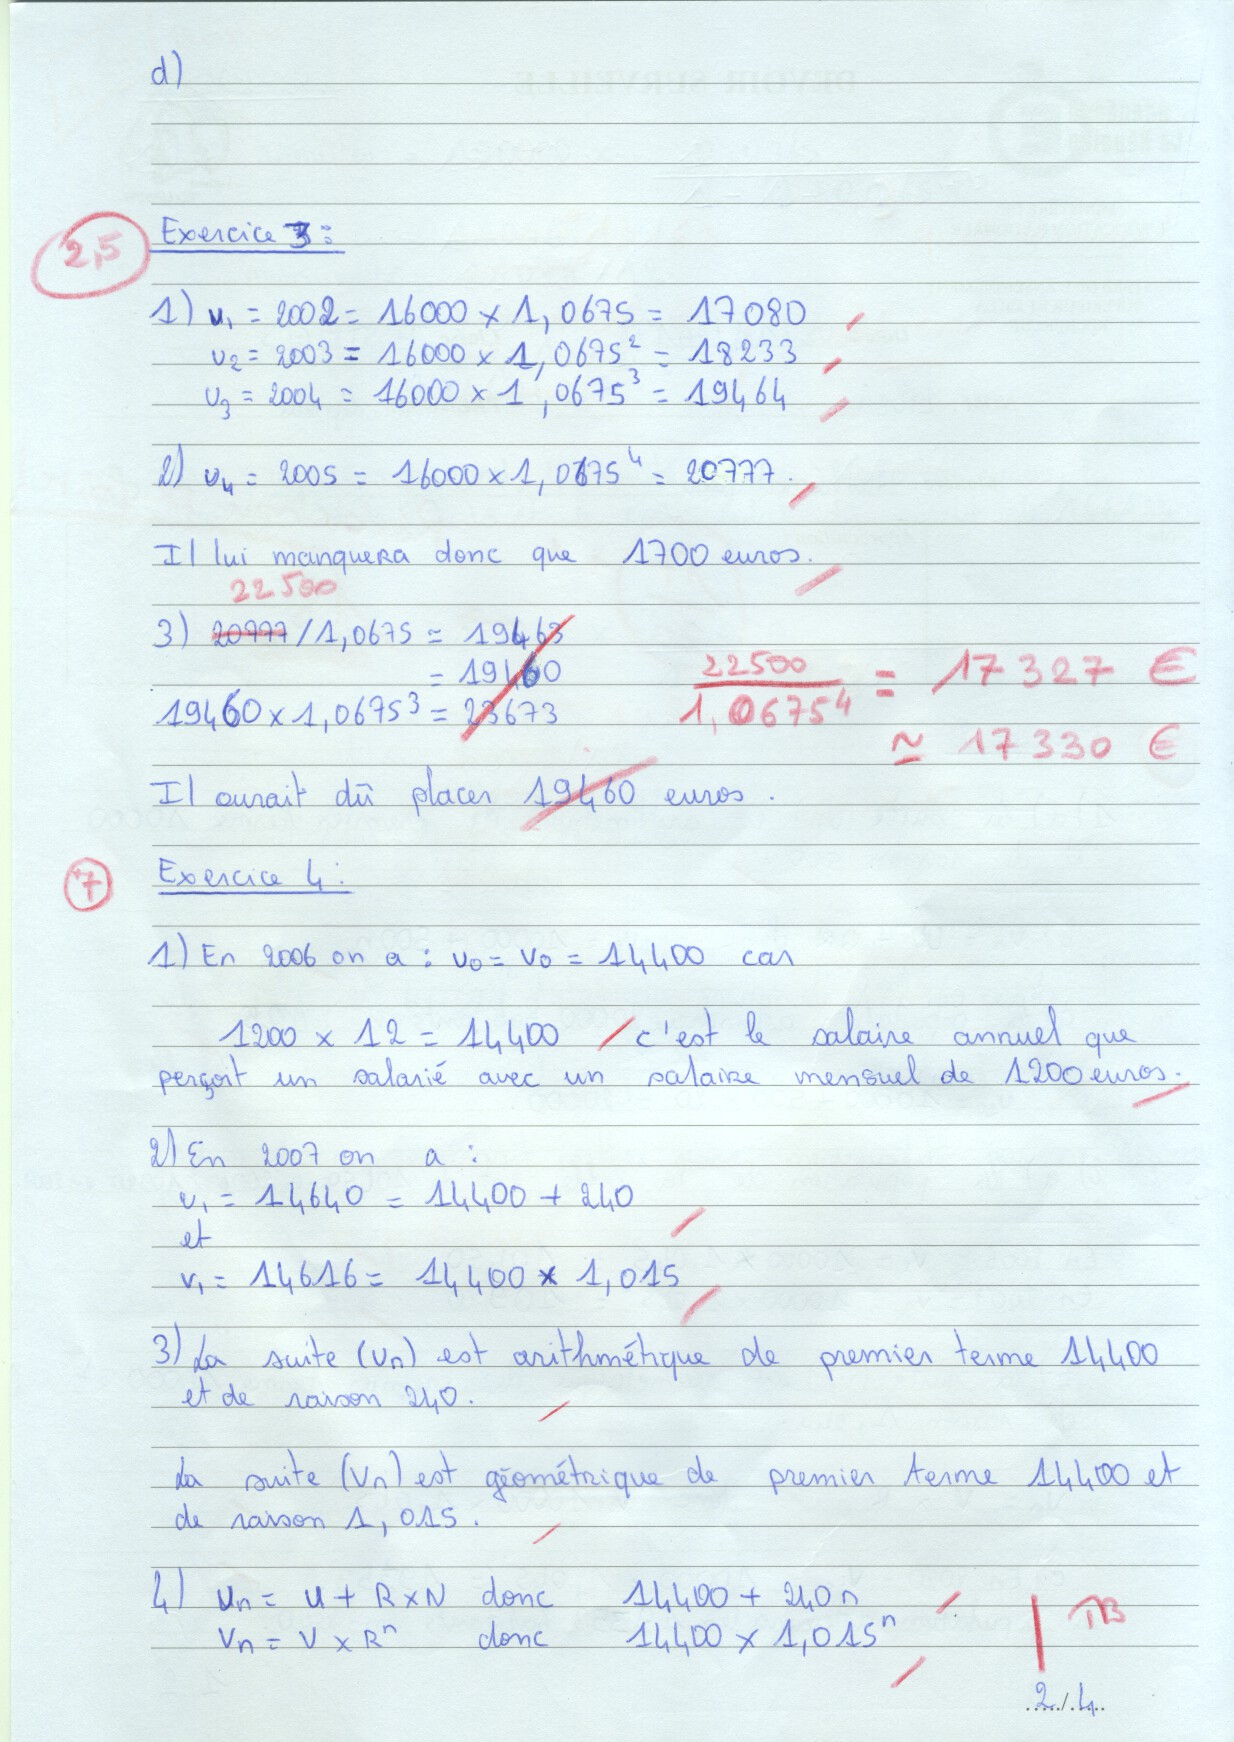 d)
2,5
Exercice 3:
1) u₁ = 2002 = 16000 x 1,0675 = 17080
u₂ = 2003 = 16000 x 1,0675² = 18233
u₃ = 2004 = 16000 x 1,0675³ = 19464
2) u₄ = 2005 = 16000 x 1,0675⁴ = 20777.
Il lui manquera donc que 1700 euros.
22500
3) 20777/1,0675 = 19463
= 19460
19460 x 1,0675³ = 23673
22500 / 1,0675⁴ = 17 327 €
≃ 17 330 €
Il aurait dû placer 19460 euros.
7
Exercice 4:
1) En 2006 on a : u₀ = v₀ = 14400 car
1200 x 12 = 14400 c'est le salaire annuel que
perçoit un salarié avec un salaire mensuel de 1200 euros.
2) En 2007 on a :
u₁ = 14640 = 14400 + 240
et
v₁ = 14616 = 14400 x 1,015
3) La suite (un) est arithmétique de premier terme 14400
et de raison 240.
La suite (Vn) est géométrique de premier terme 14400 et
de raison 1,015.
4) Un = U + R x N donc 14400 + 240n
Vn = V x Rⁿ donc 14400 x 1,015ⁿ
TB
2/4